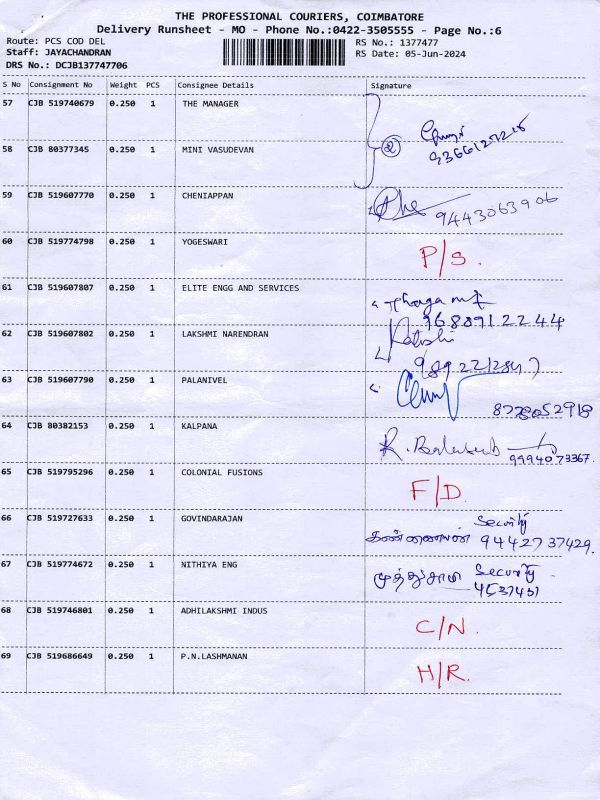 THE PROFESSIONAL COURIERS, COIMBATORE
Delivery Runsheet - MO - Phone No.:0422-3505555 - Page No.:6
Route: PCS COD DEL RS No.: 1377477
Staff: JAYACHANDRAN RS Date: 05-Jun-2024
DRS No.: DCJB137747706
S No Consignment No Weight PCS Consignee Details Signature
57 CJB 519740679 0.250 1 THE MANAGER
58 CJB 80377345 0.250 1 MINI VASUDEVAN 2
59 CJB 519607770 0.250 1 CHENIAPPAN 9443063906
60 CJB 519774798 0.250 1 YOGESWARI P/S.
61 CJB 519607807 0.250 1 ELITE ENGG AND SERVICES
9688912244
62 CJB 519607802 0.250 1 LAKSHMI NARENDRAN
63 CJB 519607790 0.250 1 PALANIVEL
8778052918
64 CJB 80382153 0.250 1 KALPANA R.
9994073367.
65 CJB 519795296 0.250 1 COLONIAL FUSIONS F/D.
66 CJB 519727633 0.250 1 GOVINDARAJAN Security
9442737429.
67 CJB 519774672 0.250 1 NITHIYA ENG Security
68 CJB 519746801 0.250 1 ADHILAKSHMI INDUS C/N.
69 CJB 519686649 0.250 1 P.N.LASHMANAN H/R.